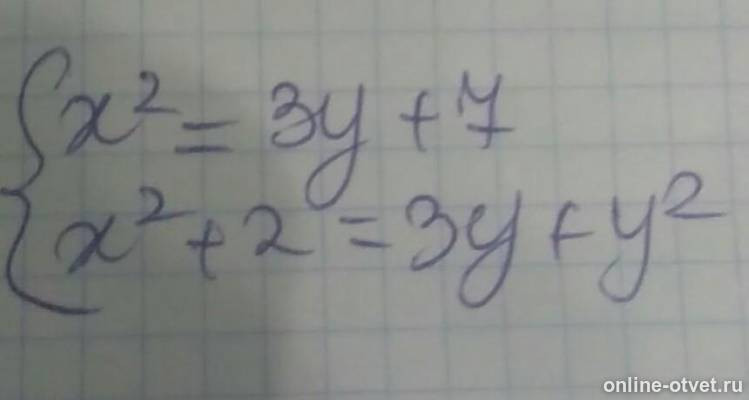 {x² = 3y + 7
x² + 2 = 3y + y²
online-otvet.ru